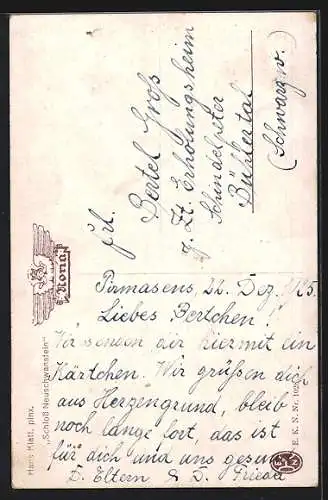 Frl.
Bertel Groß
z. Zt. Erholungsheim
Schindelpeter
Bühlertal
(Schwarzw.)
Rona
Hans Klatt, pinx.
„Schloß Neuschwanstein"
Pirmasens, 22. Dez. 1925.
Liebes Bertchen!
Wir senden dir hiermit ein
Kärtchen. Wir grüßen dich
aus Herzensgrund, bleib
noch lange fort, das ist
für dich und uns gesund
D. Eltern & D. Frieda
E. K. N. Nr.